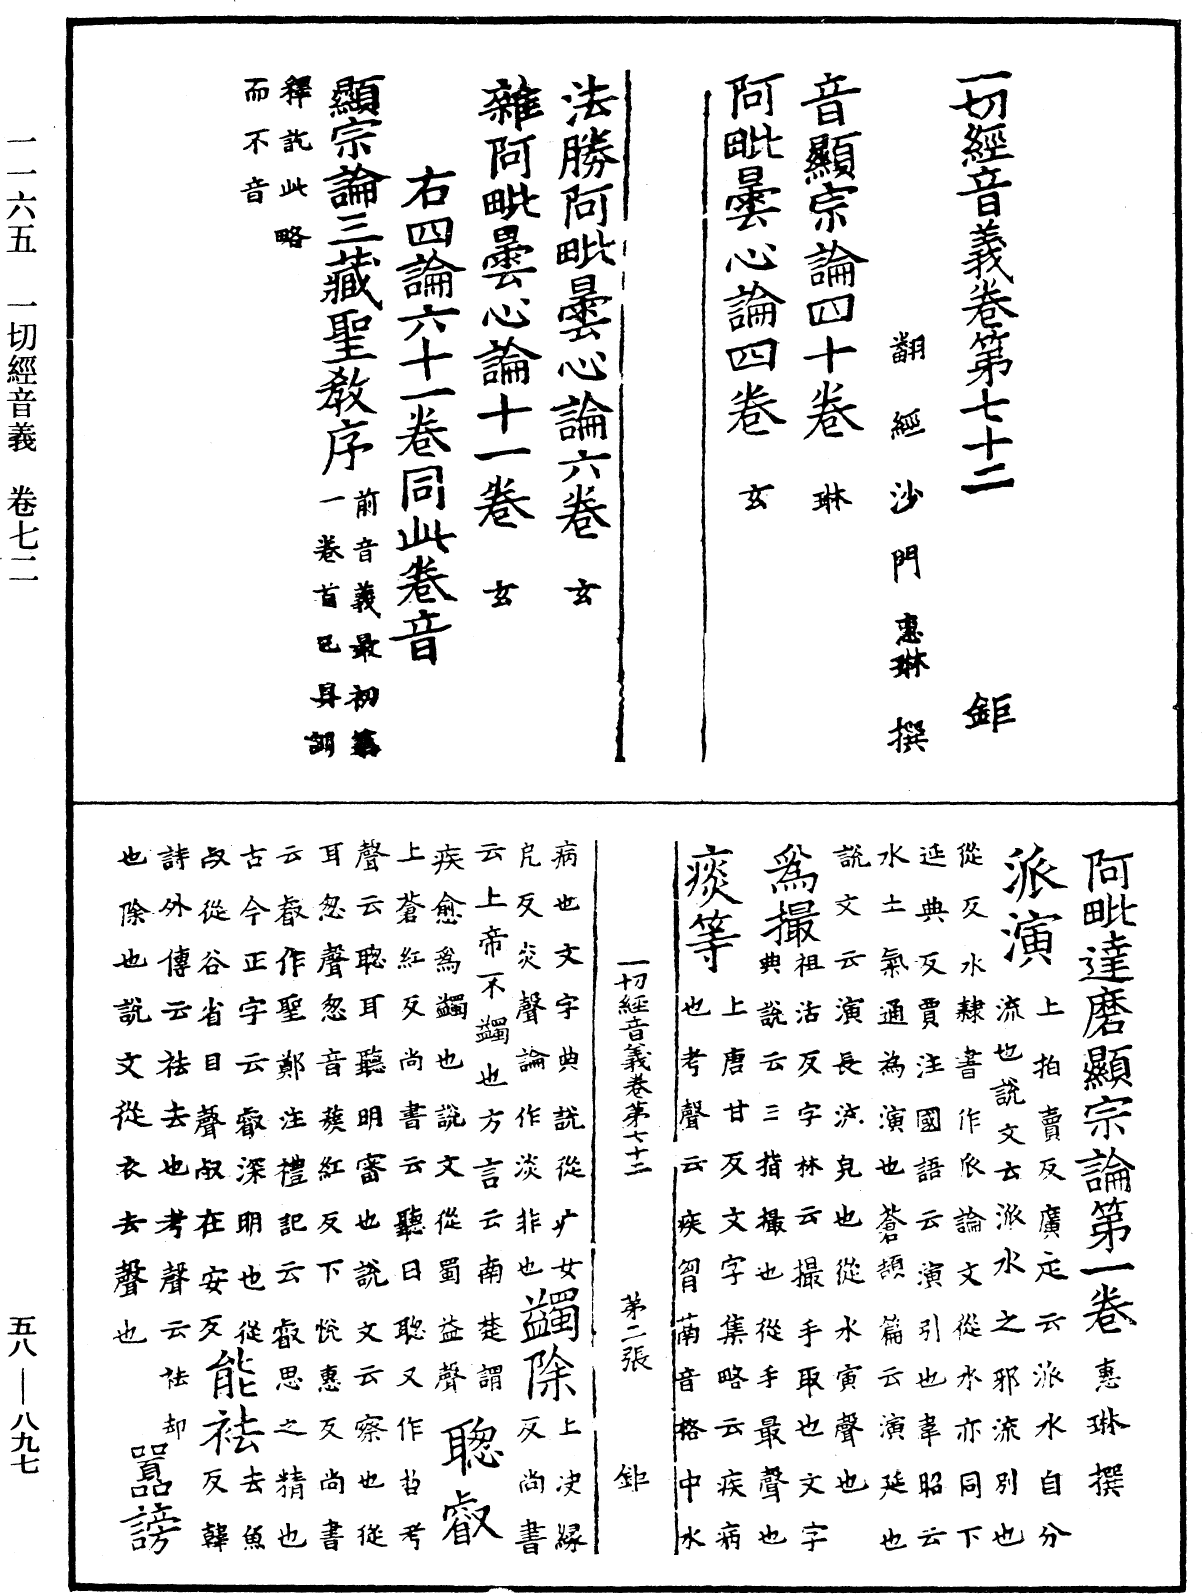 一切經音義卷第七十二 鉅
翻經沙門惠琳撰
音顯宗論四十卷 琳
阿毗曇心論四卷 玄
法勝阿毗曇心論六卷 玄
雜阿毗曇心論十一卷 玄
右四論六十一卷同此卷音
顯宗論三藏聖教序 前音義最初第
一卷首已具訓
釋訖此略
而不音
阿毗達磨顯宗論第一卷 惠琳撰
派演 上拍賣反廣疋云派水自分
流也說文云派水之邪流別也
從反水隸書作𠂢論文從水亦同下
延典反賈注國語云演引也韋昭云
水土氣通為演也蒼頡篇云演延也
說文云演長流皃也從水寅聲也
爲撮 祖活反字林云撮手取也文字
典說云三指撮也從手最聲也
痰等 上唐甘反文字集略云疾病
也考聲云疾胷鬲音格中水
一切經音義卷第七十二 第二張 鉅
病也文字典說從疒女 蠲除 上決緣
凥反炎聲論作淡非也 反尚書
云上帝不蠲也方言云南楚謂
疾愈爲蠲也說文從蜀益聲 聰叡
上蒼紅反尚書云聽曰聰又作哲考
聲云聰耳聽明審也說文云察也從
耳怱聲怱音蔟紅反下悅惠反尚書
云叡作聖鄭注禮記云叡思之精也
古今正字云叡深明也從 能袪 去魚
𣦻從谷省目聲𣦻在安反 反韓
詩外傳云袪去也考聲云袪却 嚚謗
也除也說文從衣去聲也
一一六五 一切經音義 卷七二
五八—八九七